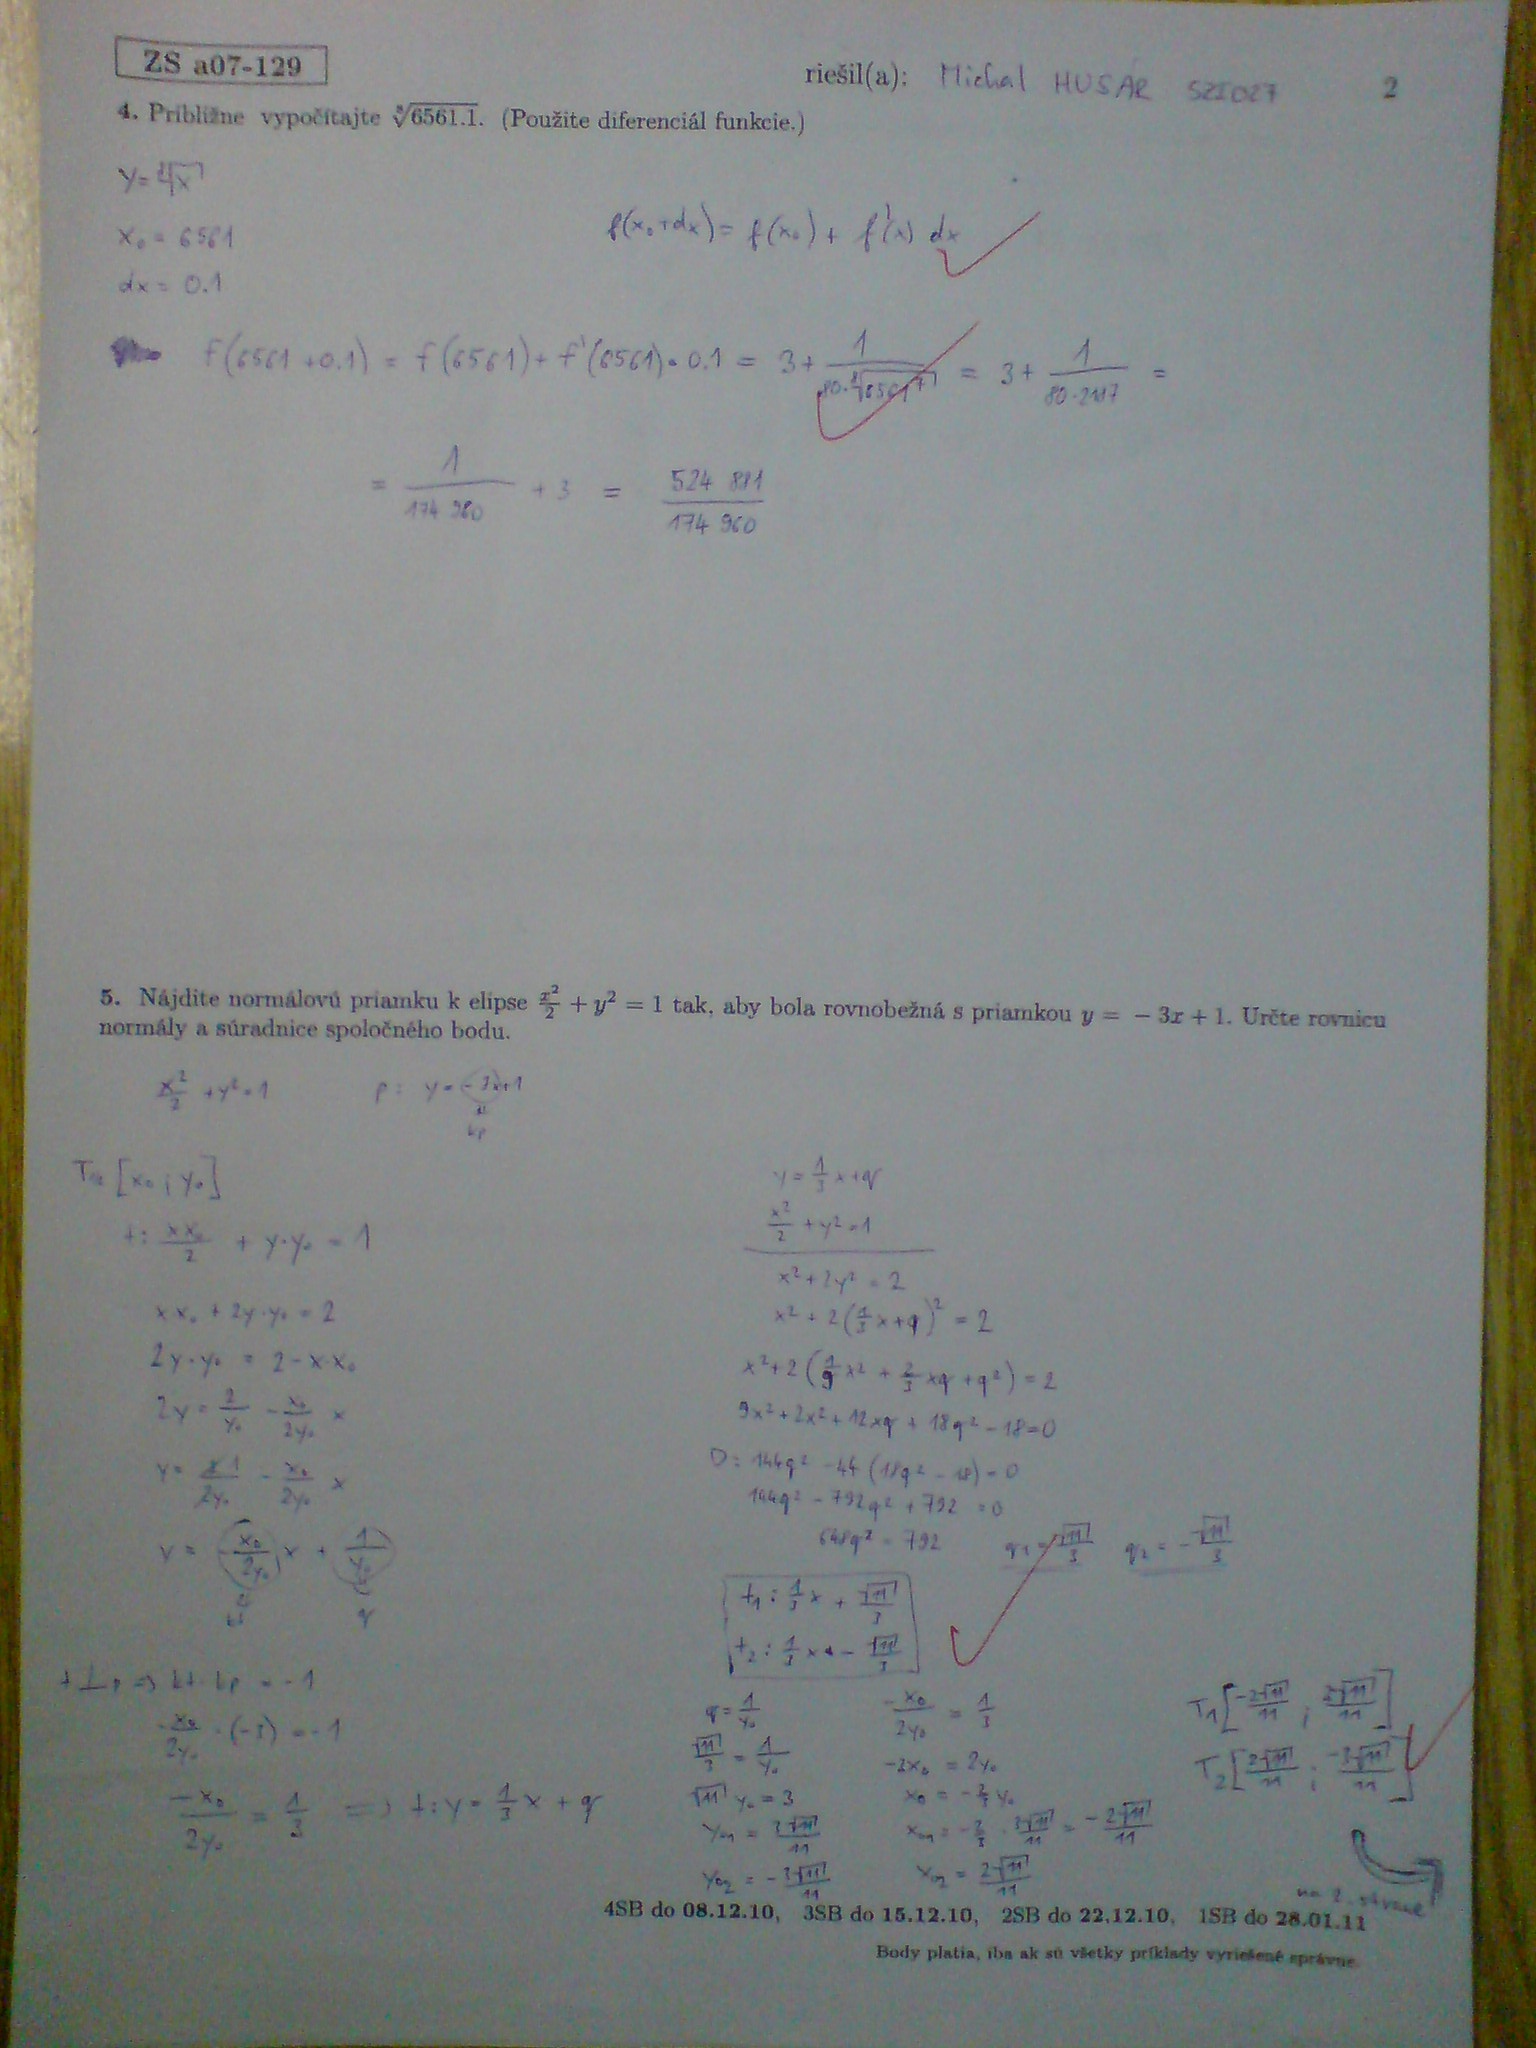 ZS a07-129
riešil(a): Michal HUSÁR 5ZI027 2
4. Približne vypočítajte ⁸√6561.1. (Použite diferenciál funkcie.)
y = ⁸√x
x₀ = 6561
dx = 0.1
f(x₀+dx) = f(x₀) + f'(x) dx
f(6561+0.1) = f(6561) + f'(6561)·0.1 = 3 + 1/(80·⁸√6561⁷) = 3 + 1/(80·2187) =
= 1/174 960 + 3 = 524 881/174 960
5. Nájdite normálovú priamku k elipse x²/2 + y² = 1 tak, aby bola rovnobežná s priamkou y = −3x + 1. Určte rovnicu
normály a súradnice spoločného bodu.
x²/2 + y² = 1 p: y = -3x+1
kp
[x₀ ; y₀]
t: xx₀/2 + y·y₀ = 1
x·x₀ + 2y·y₀ = 2
2y·y₀ = 2 - x·x₀
2y = 2/y₀ - x₀/2y₀ x
y = 1/2y₀ - x₀/2y₀ x
y = -x₀/2y₀ x + 1/y₀
kt q
t ⊥ p => kt·kp = -1
-x₀/2y₀ · (-3) = -1
-x₀/2y₀ = 1/3 => t: y = 1/3 x + q
y = 1/3 x + q
x²/2 + y² = 1
x² + 2y² = 2
x² + 2(1/3 x + q)² = 2
x² + 2(1/9 x² + 2/3 xq + q²) = 2
9x² + 2x² + 12xq + 18q² - 18 = 0
D: 144q² - 44(18q² - 18) = 0
144q² - 792q² + 792 = 0
648q² = 792 q₁ = √11/3 q₂ = -√11/3
t₁: 1/3 x + √11/3
t₂: 1/3 x - √11/3
q = 1/y₀ -x₀/2y₀ = 1/3
√11/3 = 1/y₀ -3x₀ = 2y₀
√11 y₀ = 3 x₀ = -2/3 y₀
y₀₁ = 3√11/11 x₀₁ = -2/3 · 3√11/11 = -2√11/11
y₀₂ = -3√11/11 x₀₂ = 2√11/11
T₁[-2√11/11 ; 3√11/11]
T₂[2√11/11 ; -3√11/11]
na 2. strane
4SB do 08.12.10, 3SB do 15.12.10, 2SB do 22.12.10, 1SB do 28.01.11
Body platia, iba ak sú všetky príklady vyriešené správne.